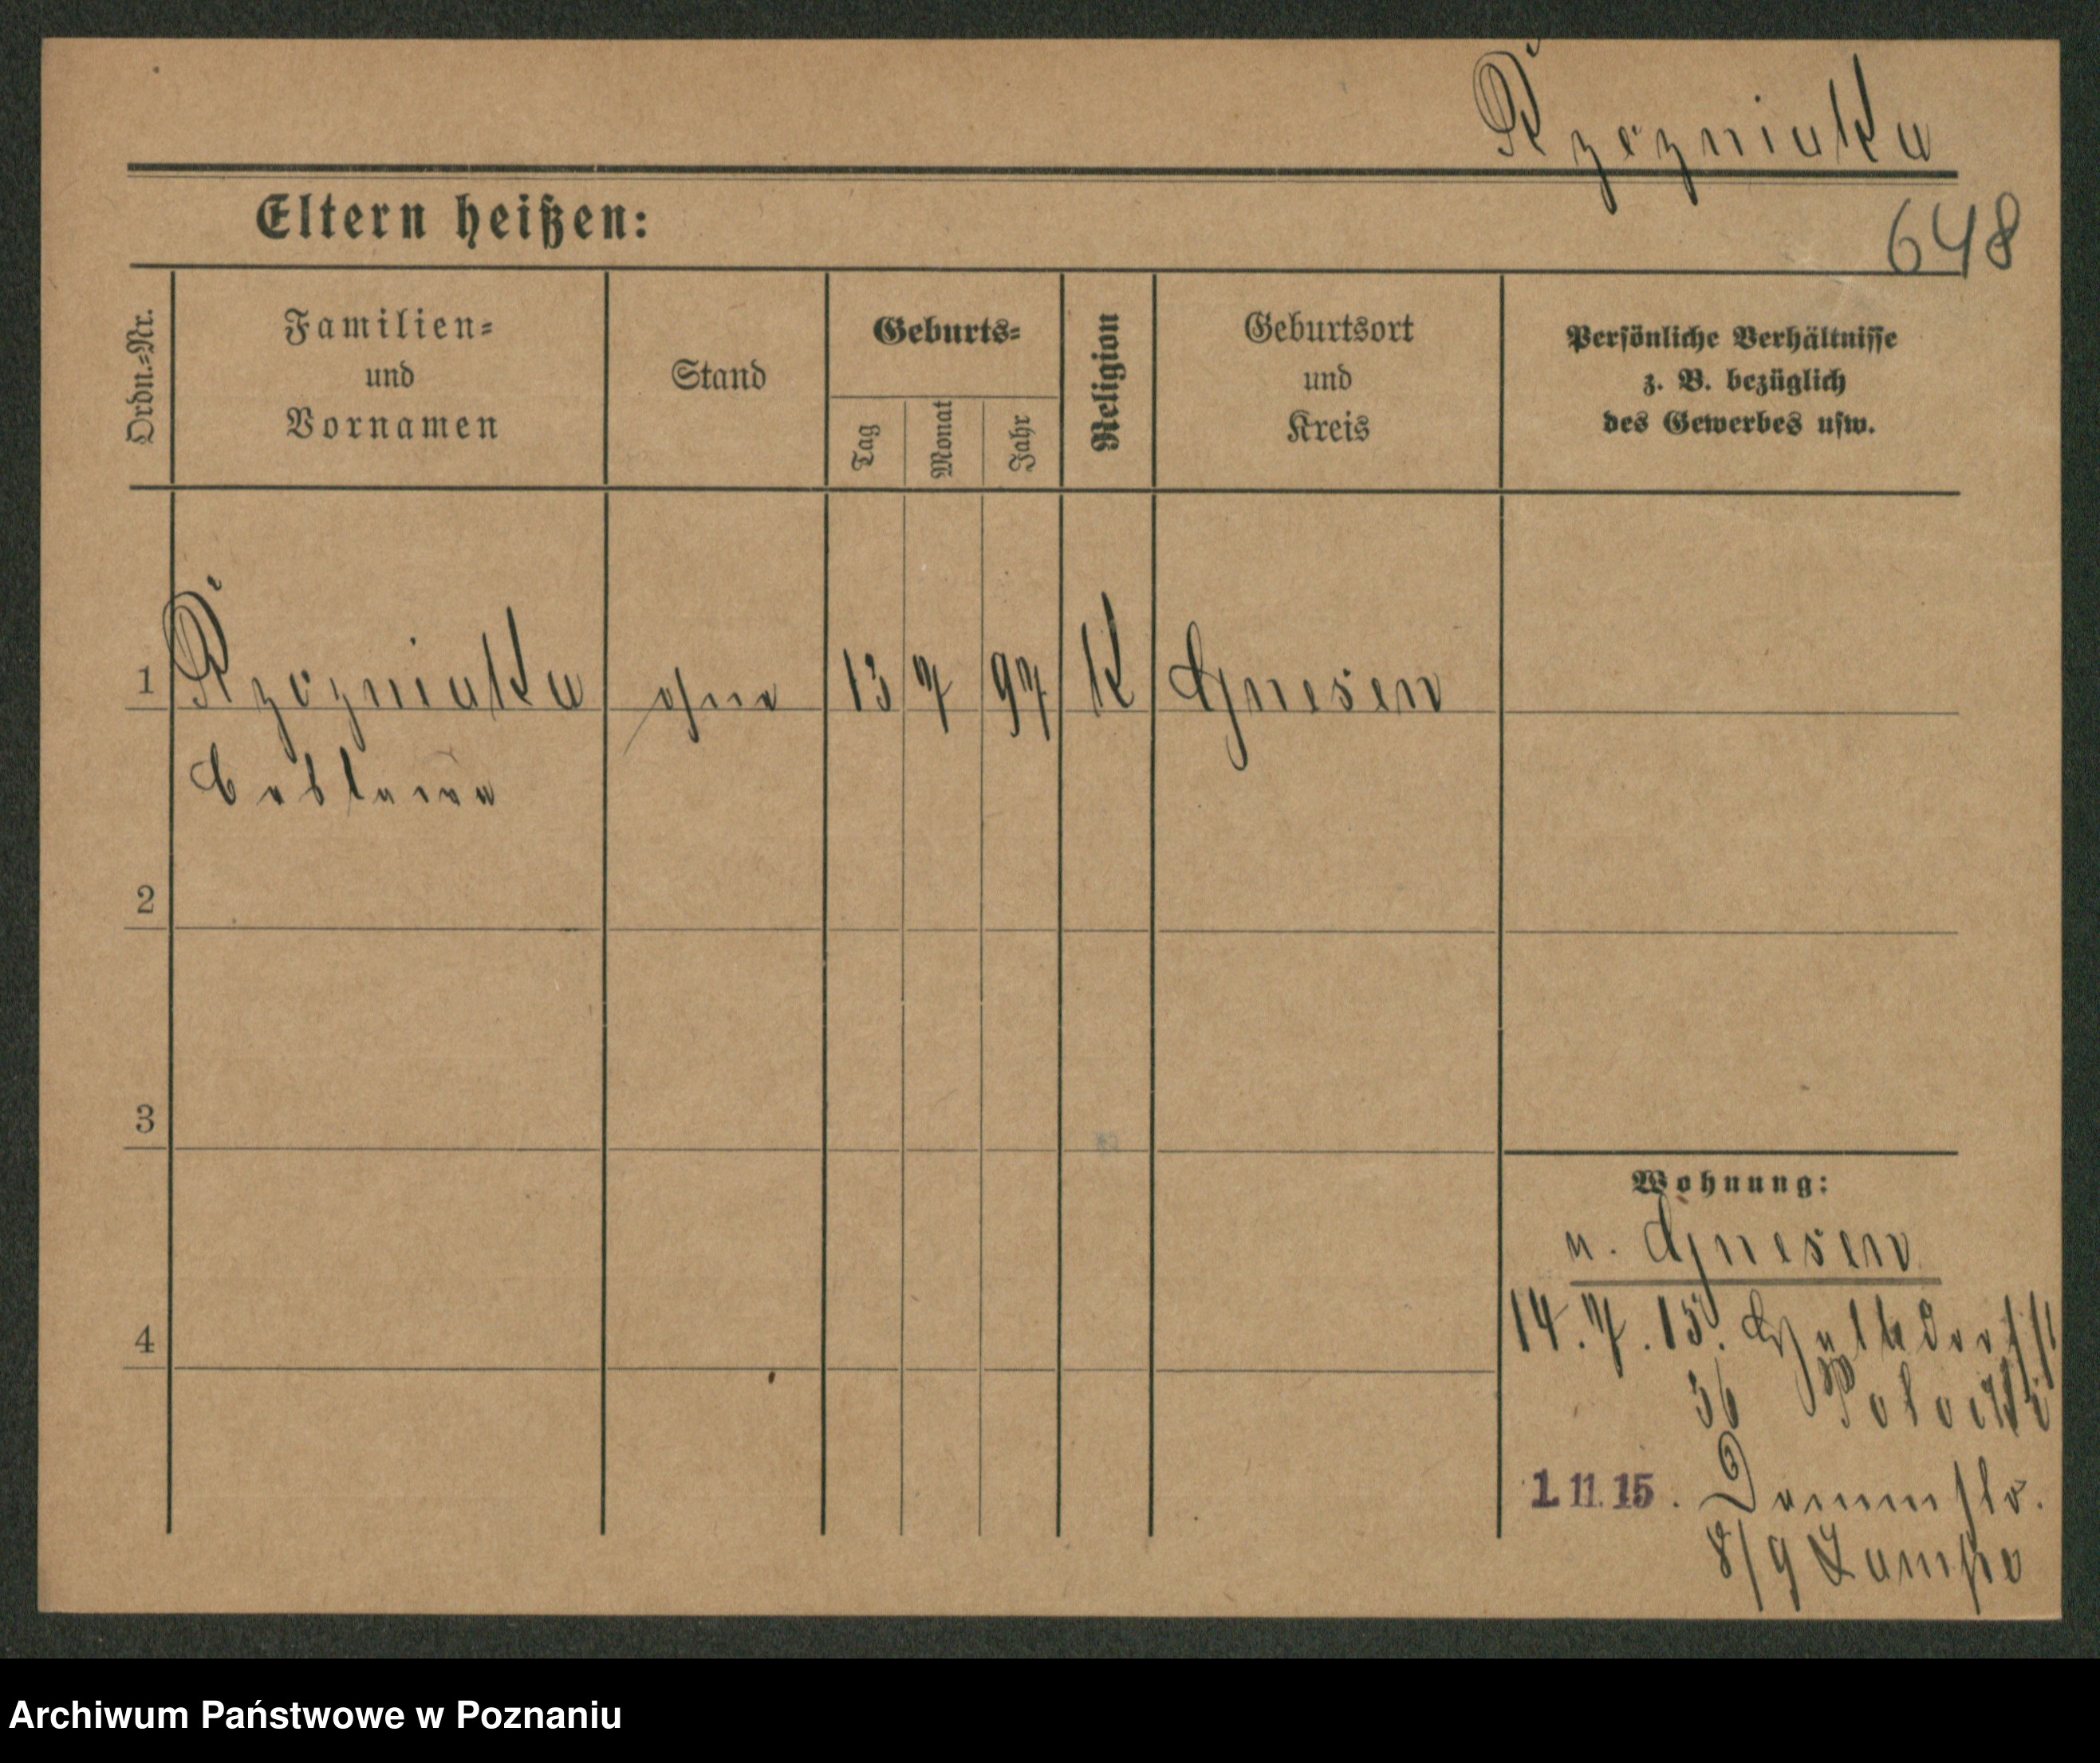 Rzezniaka
648
Eltern heißen:
Ordn.-Nr.
Familien-
und
Vornamen
Stand
Geburts-
Tag
Monat
Jahr
Religion
Geburtsort
und
Kreis
Persönliche Verhältnisse
z. B. bezüglich
des Gewerbes usw.
1 ohne 13 7 97 K Gnesen
2
3
4
Wohnung:
v. Gnesen
14. 7. 15.
36
1. 11. 15.
8/9
Archiwum Państwowe w Poznaniu